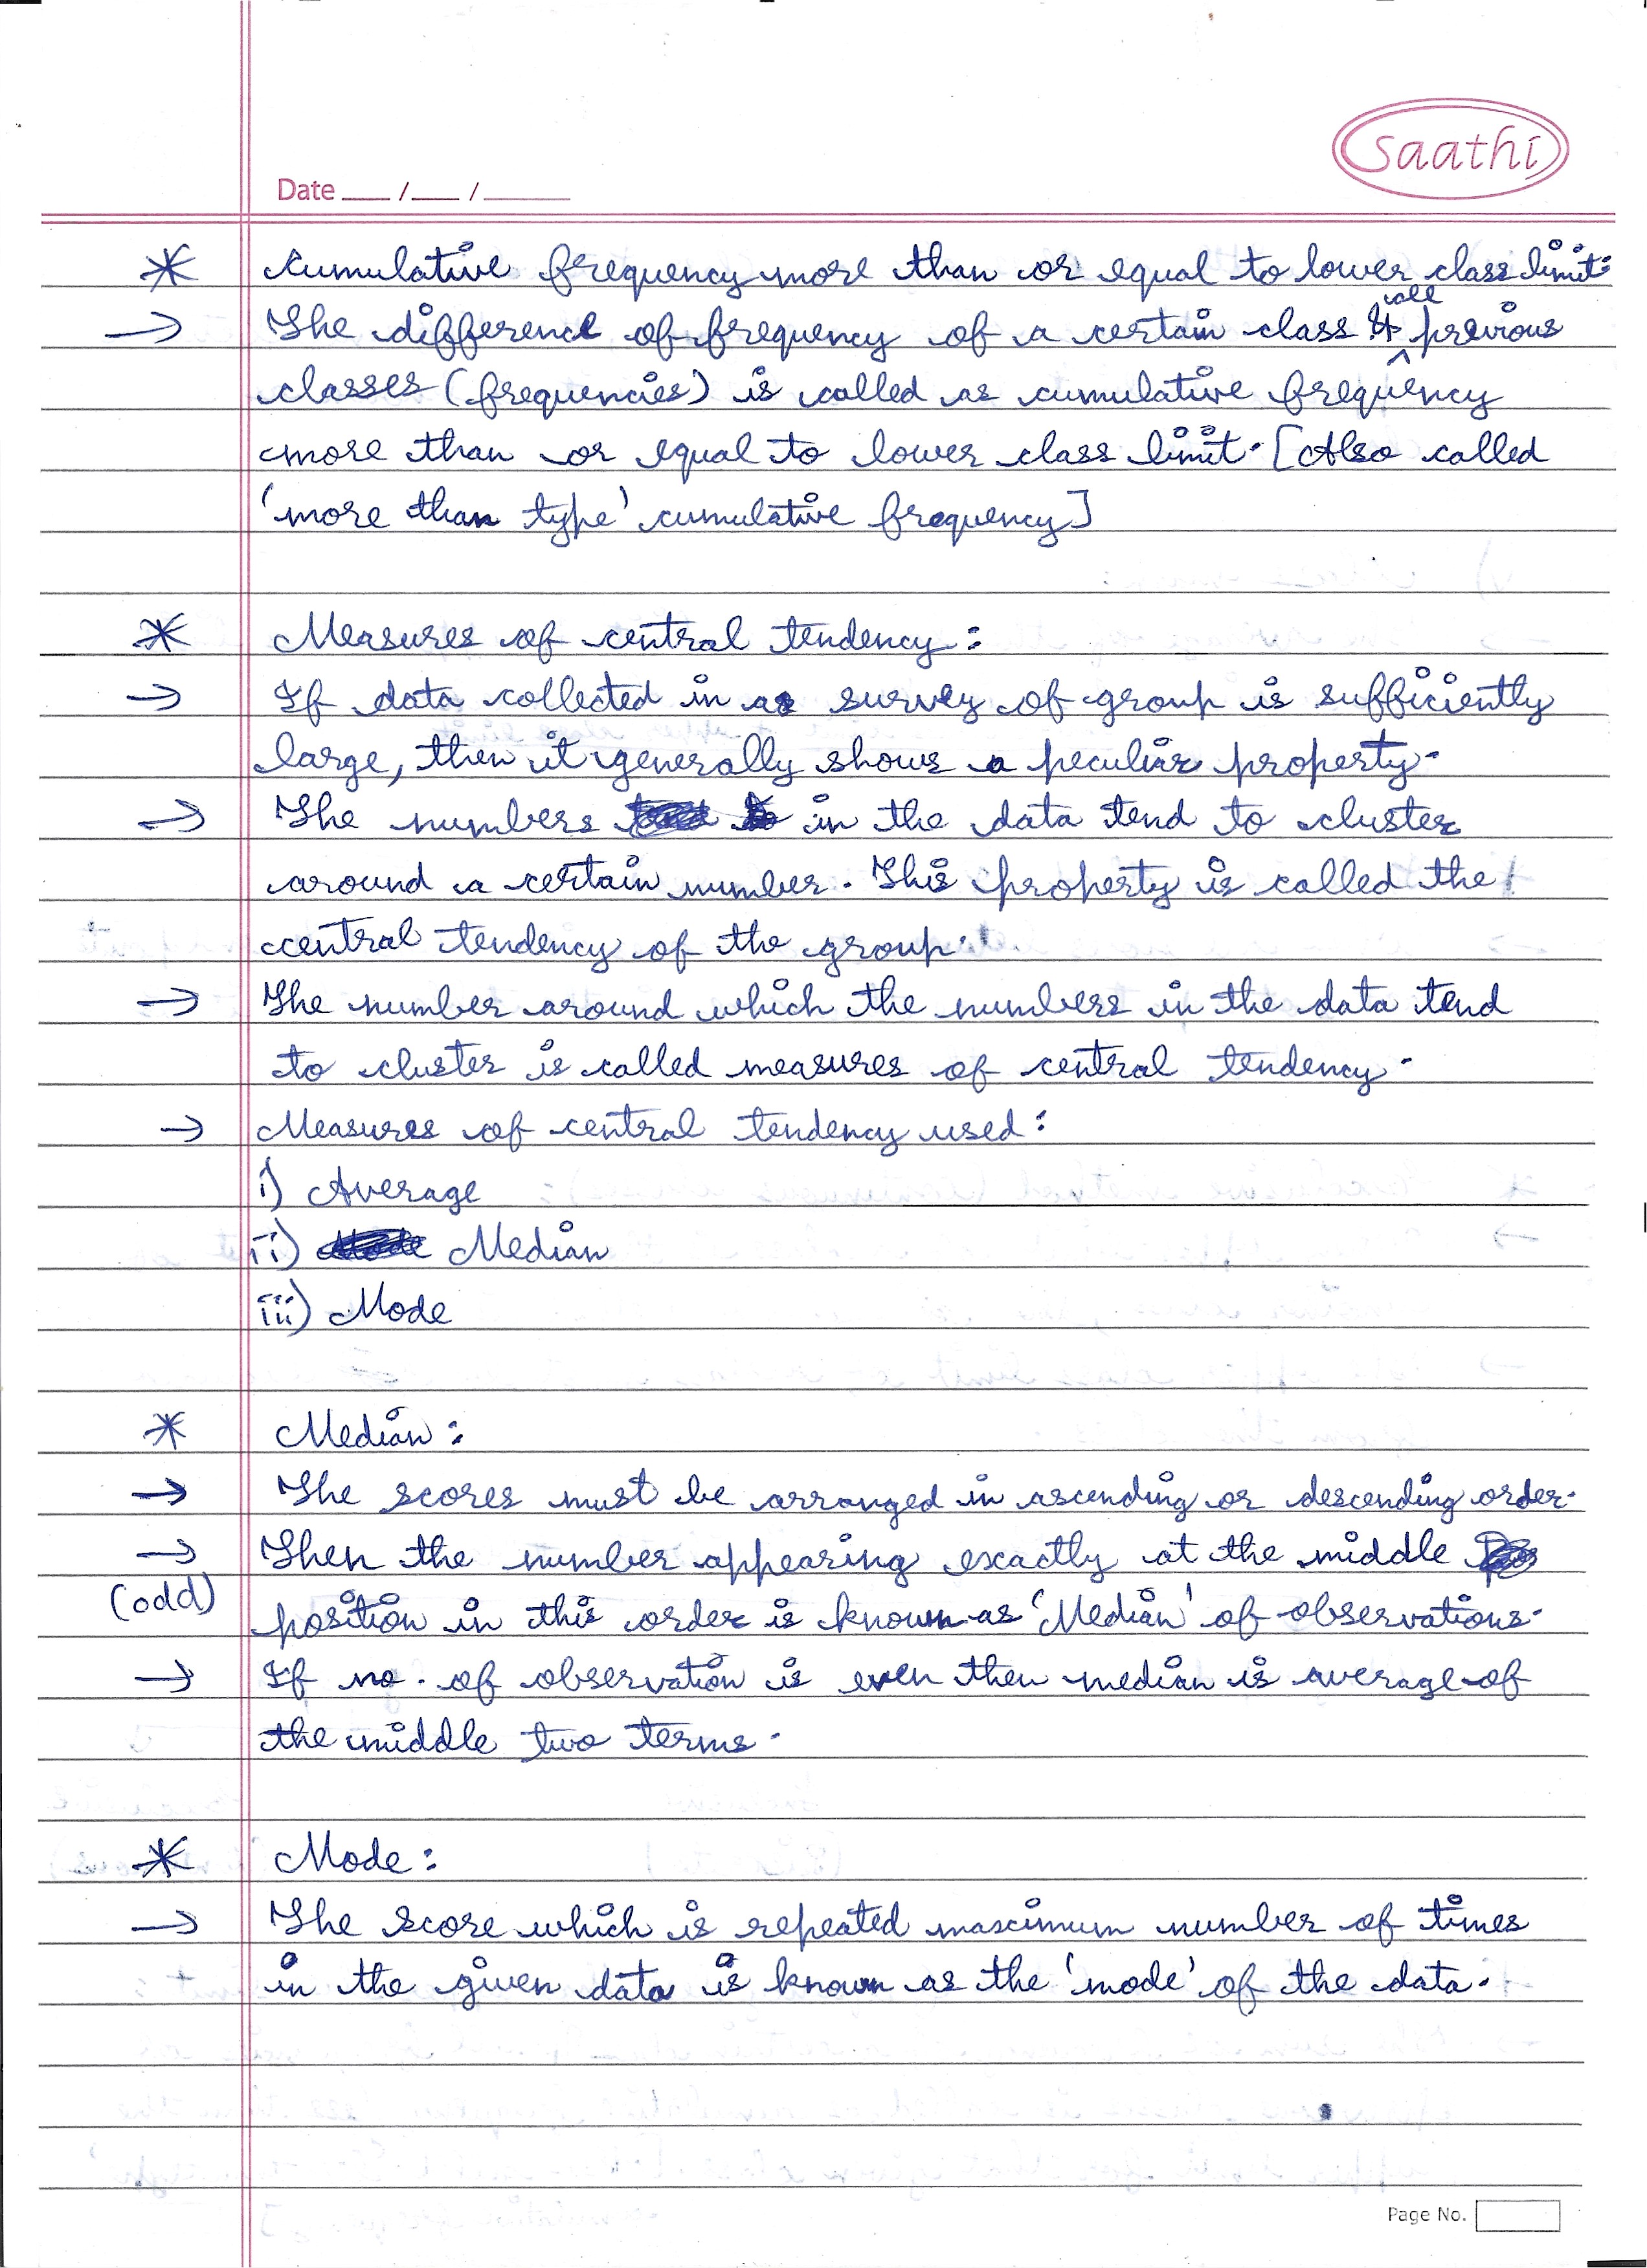 saathi
Date ___/___/______
* Cumulative frequency more than or equal to lower class limit:
→ The difference of frequency of a certain class & all previous
classes (frequencies) is called as cumulative frequency
more than or equal to lower class limit. [Also called
'more than type' cumulative frequency]
* Measures of central tendency:
→ If data collected in a survey of group is sufficiently
large, then it generally shows a peculiar property.
→ The numbers in the data tend to cluster
around a certain number. This property is called the
central tendency of the group.
→ The number around which the numbers in the data tend
to cluster is called measures of central tendency.
→ Measures of central tendency used:
i) Average
ii) Median
iii) Mode
* Median:
→ The scores must be arranged in ascending or descending order.
→ Then the number appearing exactly at the middle
(odd) position in this order is known as 'Median' of observations.
→ If no. of observation is even then median is average of
the middle two terms.
* Mode:
→ The score which is repeated maximum number of times
in the given data is known as the 'mode' of the data.
Page No.